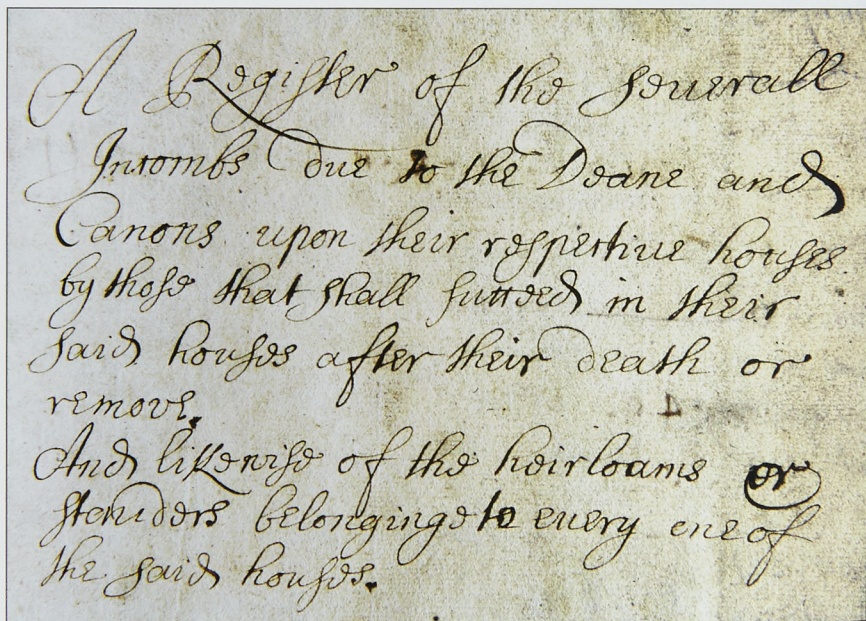 A Register of the severall
Incombs due to the Deane and
Canons upon their respective houses
by those that shall succeed in their
said houses after their death or
remove.
And likewise of the heirloams or
standers belonginge to every one of
the said houses.